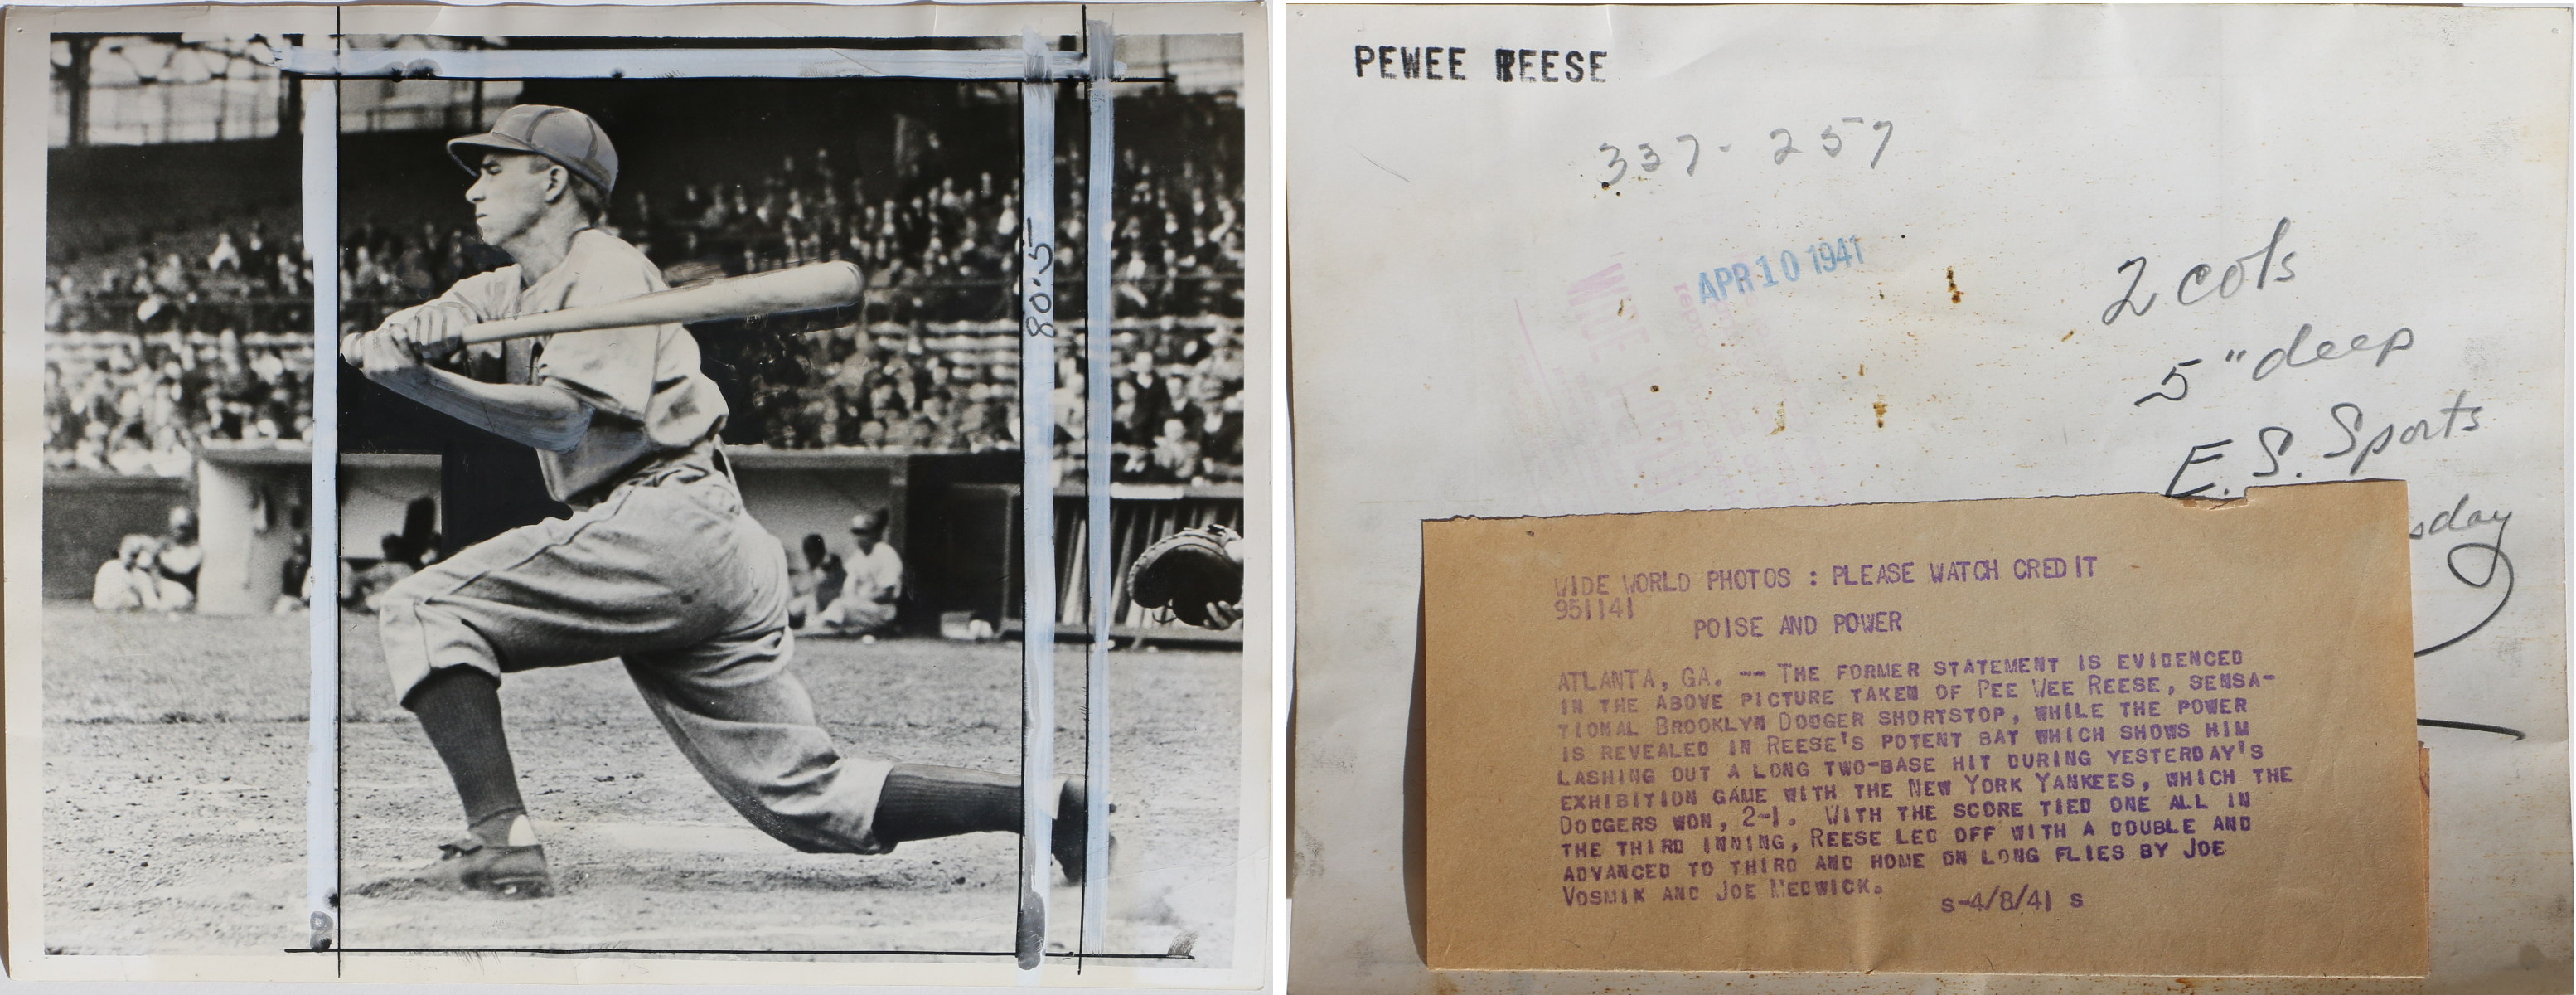 80.5
PEWEE REESE
337-257
APR 10 1941
2 cols
5" deep
E.S. Sports
sday
WIDE WORLD PHOTOS : PLEASE WATCH CREDIT
951141
POISE AND POWER
ATLANTA, GA. -- THE FORMER STATEMENT IS EVIDENCED
IN THE ABOVE PICTURE TAKEN OF PEE WEE REESE, SENSA-
TIONAL BROOKLYN DODGER SHORTSTOP, WHILE THE POWER
IS REVEALED IN REESE'S POTENT BAT WHICH SHOWS HIM
LASHING OUT A LONG TWO-BASE HIT DURING YESTERDAY'S
EXHIBITION GAME WITH THE NEW YORK YANKEES, WHICH THE
DODGERS WON, 2-1. WITH THE SCORE TIED ONE ALL IN
THE THIRD INNING, REESE LED OFF WITH A DOUBLE AND
ADVANCED TO THIRD AND HOME ON LONG FLIES BY JOE
VOSMIK AND JOE MEDWICK.
S-4/8/41 S